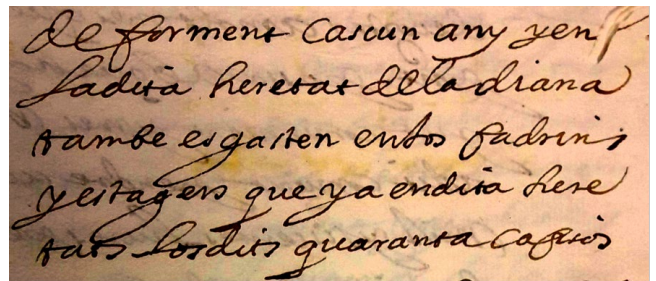 de forment Cascun any yen
ladita heretat dela diana
tambe es gasten entos fadrins
yestagers que ya endita here
tats losdits quaranta cafisos